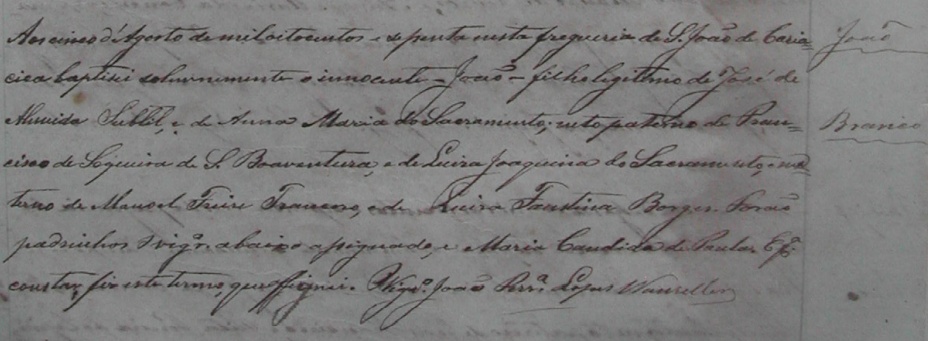 Aos cinco d'Agosto de mil oitocentos e sepenta nesta freguezia de S. João de Caria-
cica baptisei solemnemente o innocente - João - filho legitimo de José de
Almeida e de Anna Maria do Sacramento; neto paterno de Fran-
cisco de Siqueira de S. Boaventura, e de Luiza Joaquina do Sacramento, e ma-
terno de Manoel Freire e de Luiza Faustina Borges. Forão
padrinhos o vigr.º abaixo assignado, e Maria Candida de Paula. E p.ª
constar, fiz este termo, que assignei. O Vigr.º João Ferr.ª Lopes Wanzeller
João
Branco